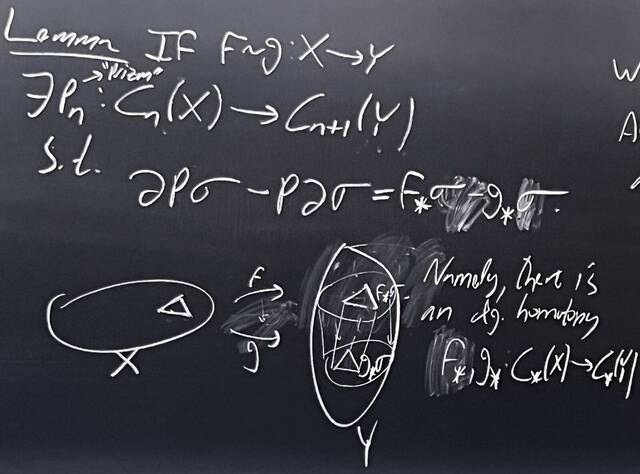 Lemma If F~g: X→Y
∃ P_n: C_n(X) → C_{n+1}(Y)
→"Prizm"
s.t.
∂Pσ - P∂σ = F_*σ - g_*σ.
F
g
X
F_*σ
g_*σ
Y
Namely, there is
an alg. homotopy
F_*, g_*: C_*(X) → C_*(Y)
W
A